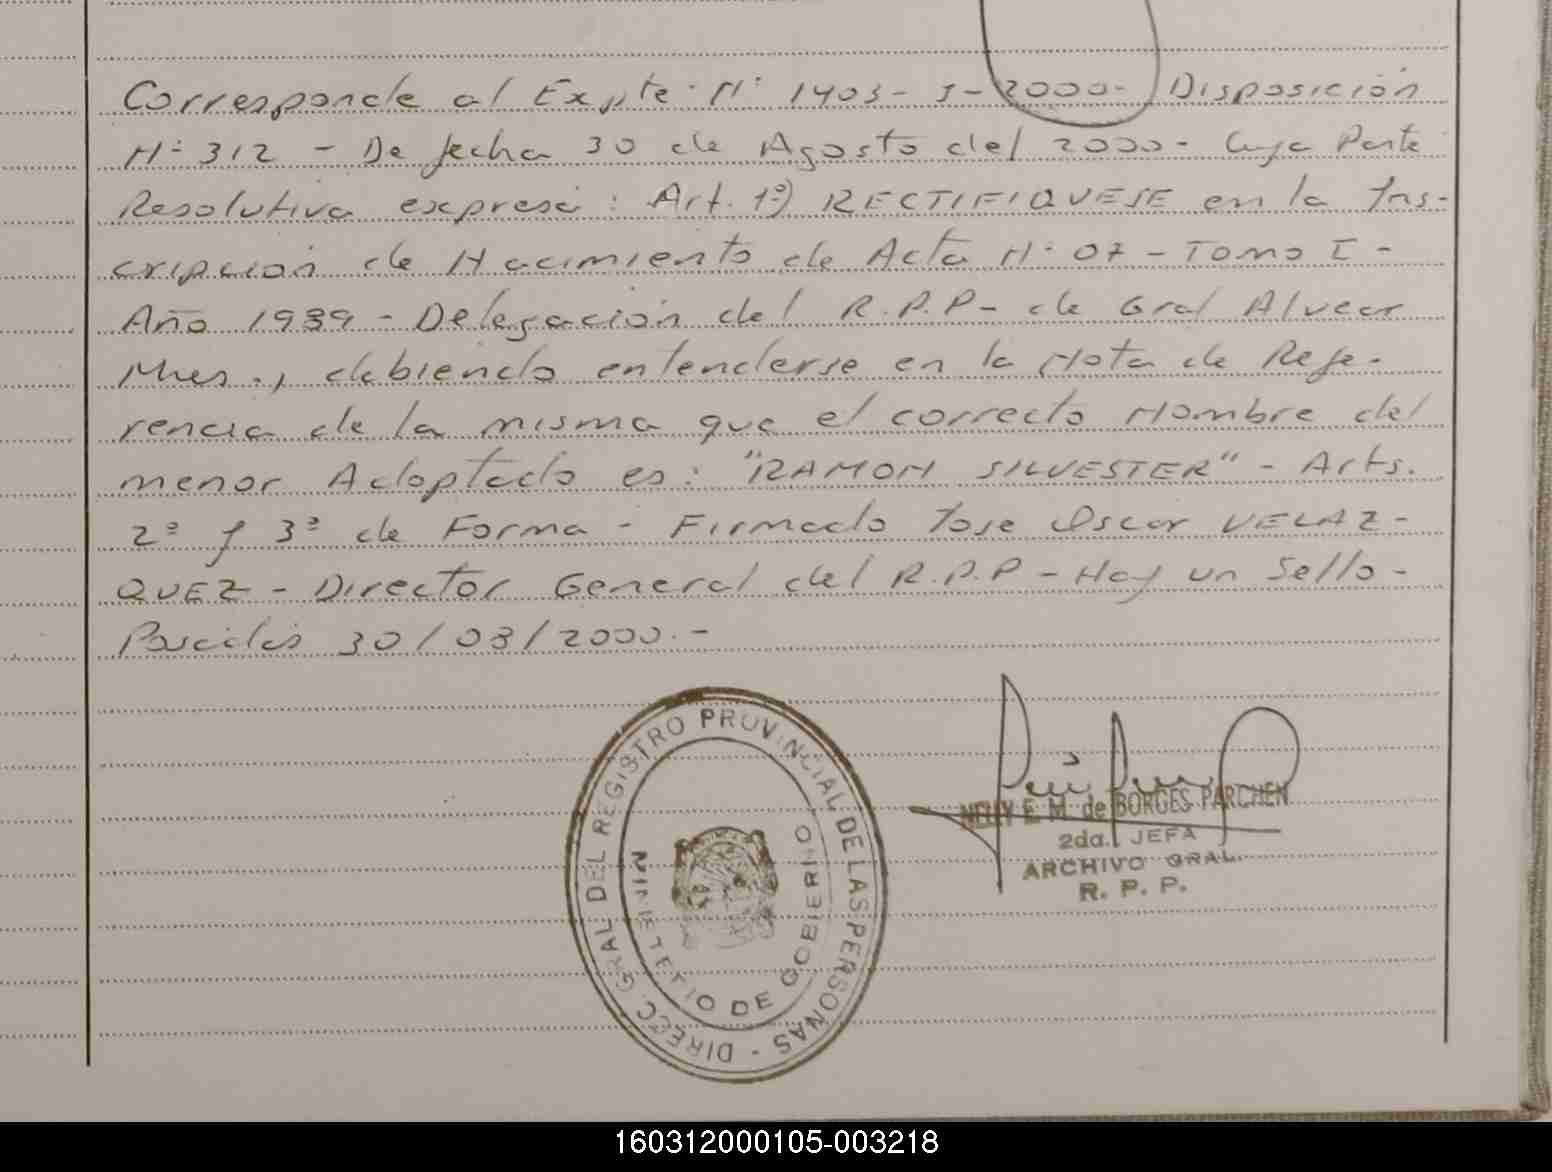 Corresponde al Expte. N° 1403-S-2000- Disposición
N° 312 - De fecha 30 de Agosto del 2000- Cuya Parte
Resolutiva expresa: Art. 1º) RECTIFIQUESE en la Ins-
cripción de Nacimiento de Acta N° 07 - Tomo I -
Año 1989 - Delegación del R.P.P- de Gral Alvear
Mnes., debiendo entenderse en la Nota de Refe-
rencia de la misma que el correcto Nombre del
menor Adoptado es: "RAMON SILVESTER" - Arts.
2º y 3º de Forma - Firmado Jose Oscar VELAZ-
QUEZ - Director General del R.P.P - Hay un Sello -
Posadas 30/08/2000.-
DIRECC. GRAL DEL REGISTRO PROVINCIAL DE LAS PERSONAS -
MINISTERIO DE GOBIERNO
NELLY E. M. de BORGES PARCHEN
2da. JEFA
ARCHIVO GRAL.
R. P. P.
160312000105-003218